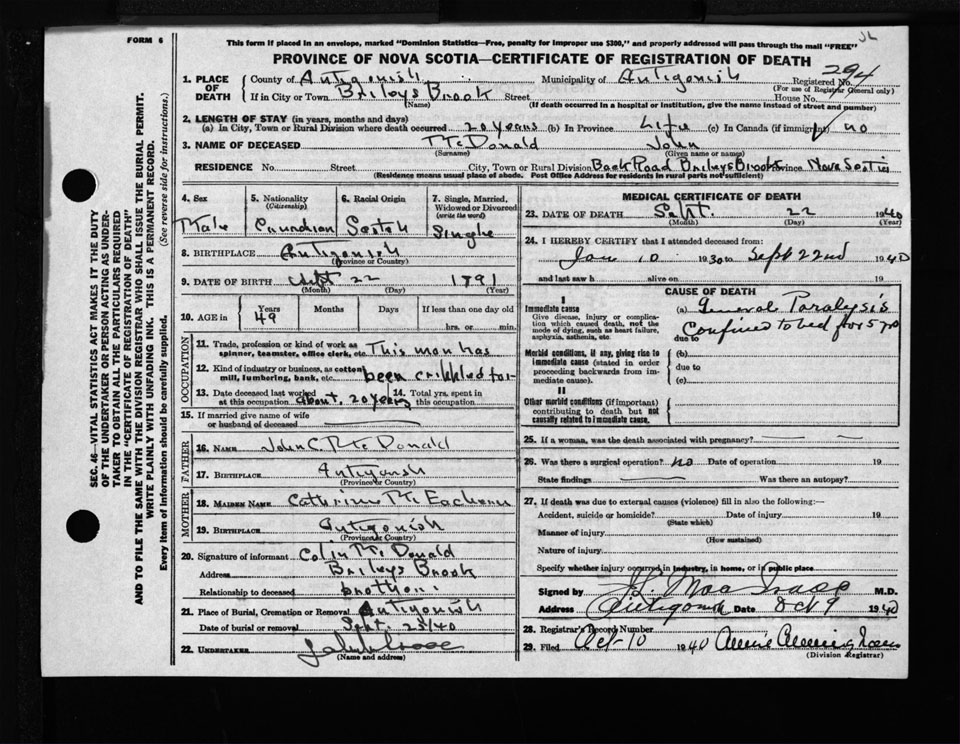 FORM 6
This form if placed in an envelope, marked "Dominion Statistics—Free, penalty for improper use $300," and properly addressed will pass through the mail "FREE"
JL
PROVINCE OF NOVA SCOTIA—CERTIFICATE OF REGISTRATION OF DEATH
294
1. PLACE OF DEATH
County of Antigonish Municipality of Antigonish Registered No.
(For use of Registrar General only)
If in City or Town Brileys Brook Street House No.
(Name) (If death occurred in a hospital or institution, give the name instead of street and number)
2. LENGTH OF STAY (in years, months and days)
(a) In City, Town or Rural Division where death occurred 20 Years (b) In Province Life (c) In Canada (if immigrant) no
3. NAME OF DECEASED McDonald John
(Surname) (Given name or names)
RESIDENCE No. Street City, Town or Rural Division Back Road Brileys Brook Province Nova Scotia
(Residence means usual place of abode. Post Office Address for residents in rural parts not sufficient)
4. Sex
Male
5. Nationality
(Citizenship)
Canadian
6. Racial Origin
Scotch
7. Single, Married, Widowed or Divorced
(write the word)
Single
8. BIRTHPLACE Antigonish
(Province or Country)
9. DATE OF BIRTH Sept 22 1891
(Month) (Day) (Year)
10. AGE in Years Months Days If less than one day old
49 hrs. or min.
OCCUPATION
11. Trade, profession or kind of work as This man has
spinner, teamster, office clerk, etc.
12. Kind of industry or business, as cotton been crikkled for
mill, lumbering, bank, etc.
13. Date deceased last worked at this occupation about 20 years
14. Total yrs. spent in this occupation
15. If married give name of wife
or husband of deceased
FATHER
16. NAME John C. McDonald
17. BIRTHPLACE Antigonish
(Province or Country)
MOTHER
18. MAIDEN NAME Cathrine McEachern
19. BIRTHPLACE Antigonish
(Province or Country)
20. Signature of informant Colin McDonald
Address Brileys Brook
Relationship to deceased brother
21. Place of Burial, Cremation or Removal Antigonish
Date of burial or removal Sept. 25/40
22. UNDERTAKER
(Name and address)
MEDICAL CERTIFICATE OF DEATH
23. DATE OF DEATH Sept. 22 1940
(Month) (Day) (Year)
24. I HEREBY CERTIFY that I attended deceased from:
Jan 10 1930 to Sept 22nd 1940
and last saw h alive on 19
CAUSE OF DEATH
I
Immediate cause
Give disease, injury or complication which caused death, not the mode of dying, such as heart failure, asphyxia, asthenia, etc.
(a) General Paralysis
Confined to bed for 5 yrs
due to
Morbid conditions, if any, giving rise to immediate cause (stated in order proceeding backwards from immediate cause).
(b)
due to
(c)
II
Other morbid conditions (if important) contributing to death but not causally related to immediate cause.
25. If a woman, was the death associated with pregnancy?
26. Was there a surgical operation? no Date of operation 19
State findings Was there an autopsy?
27. If death was due to external causes (violence) fill in also the following:—
Accident, suicide or homicide? Date of injury 19
(State which)
Manner of injury
(How sustained)
Nature of injury
Specify whether injury occurred in industry, in home, or in public place
Signed by M.D.
Address Antigonish Date Oct 9 1940
28. Registrar's Record Number
29. Filed Oct-10 1940 Annie
(Division Registrar)
SEC. 46—VITAL STATISTICS ACT MAKES IT THE DUTY
OF THE UNDERTAKER OR PERSON ACTING AS UNDERTAKER
TO OBTAIN ALL THE PARTICULARS REQUIRED
IN THE "CERTIFICATE OF REGISTRATION OF DEATH"
AND TO FILE THE SAME WITH THE DIVISION REGISTRAR WHO SHALL ISSUE THE BURIAL PERMIT.
WRITE PLAINLY WITH UNFADING INK. THIS IS A PERMANENT RECORD.
Every item of information should be carefully supplied. (See reverse side for instructions.)